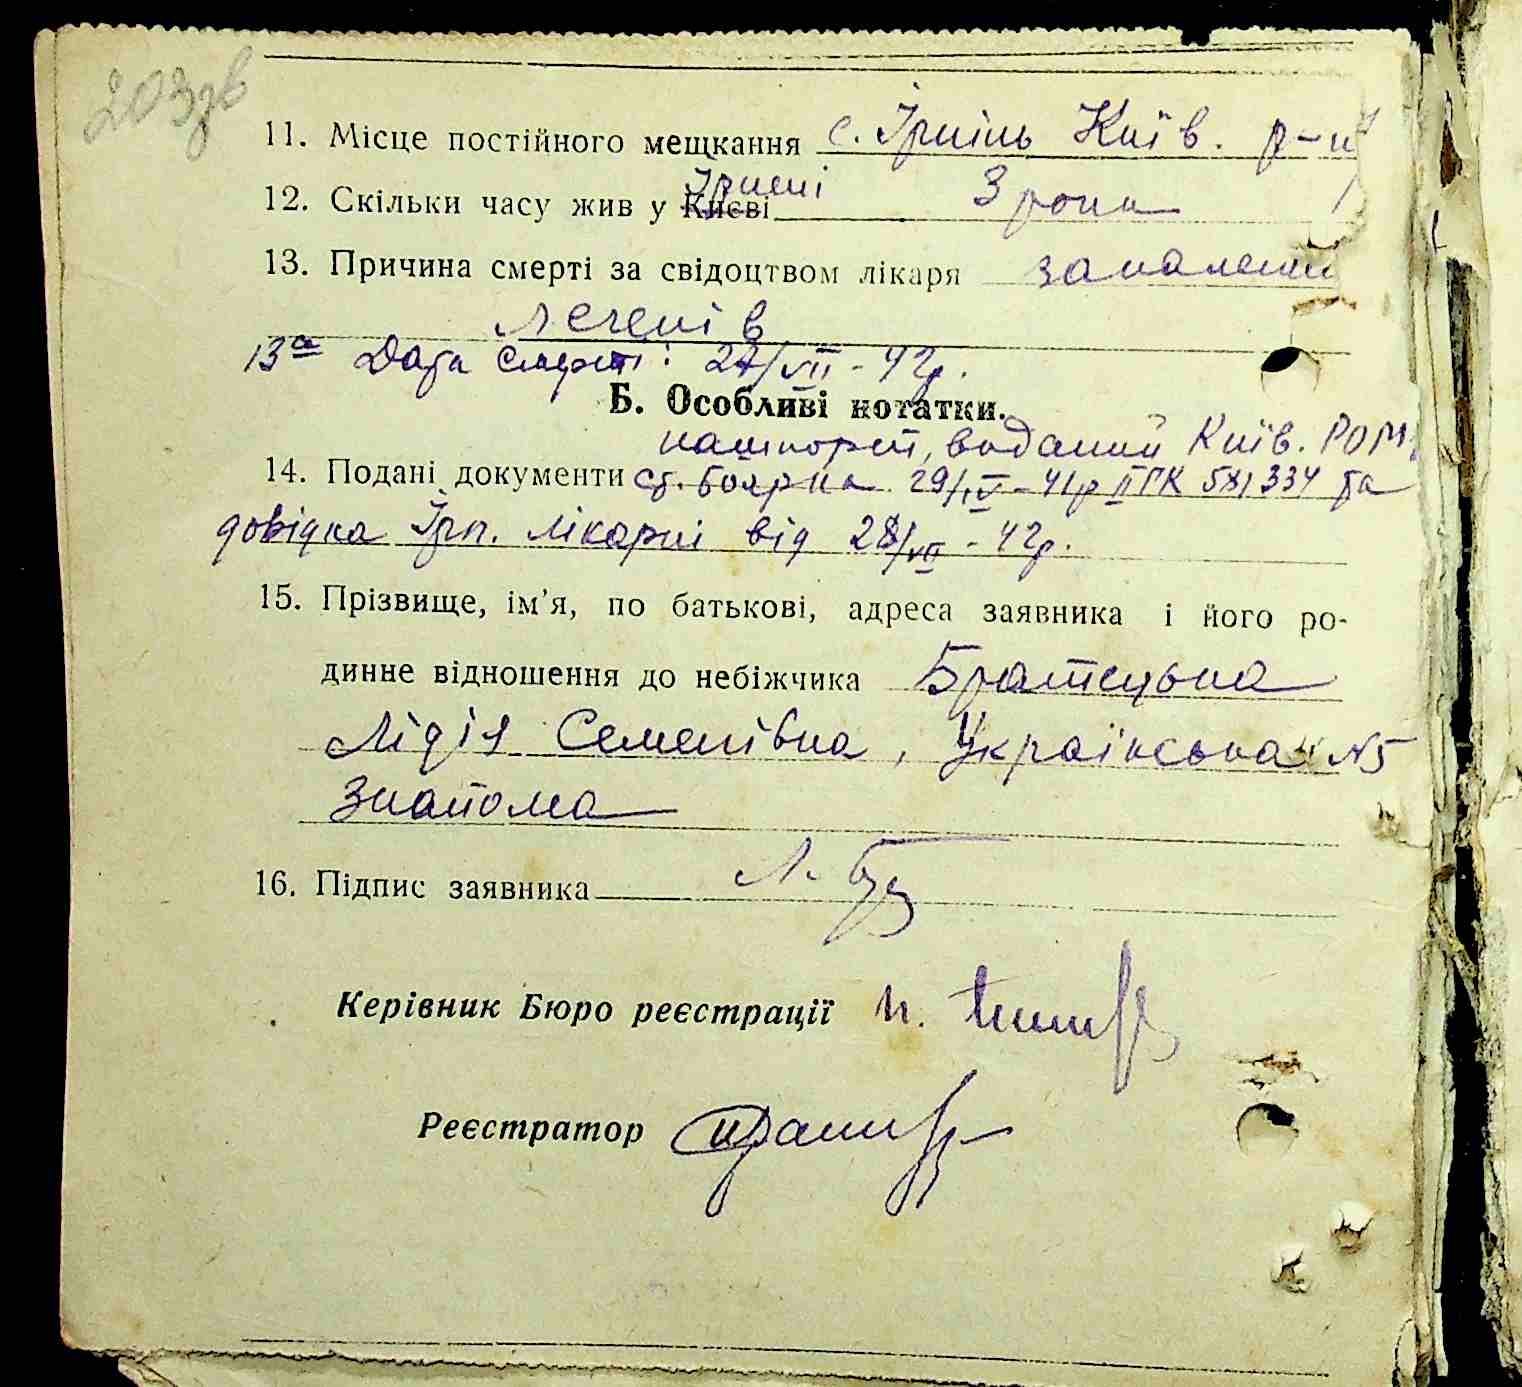 203зв
11. Місце постійного мещкання с. Ірпінь Київ. р-н
Ірпені
12. Скільки часу жив у Києві 3 роки
13. Причина смерті за свідоцтвом лікаря запалення
легенів
13а Дата смерті: 27/VII - 42р.
Б. Особливі нотатки.
пашпорт, виданий Київ. РОМ
14. Подані документи ст. Боярка 29/IV - 41р II ГК 581334 та
довідка Ірп. лікарні від 28/VII - 42р.
15. Прізвище, ім'я, по батькові, адреса заявника і його ро-
динне відношення до небіжчика Братецька
Лідія Семенівна, Українська №5
Знайома
16. Підпис заявника Л.
Керівник Бюро реєстрації
Реєстратор